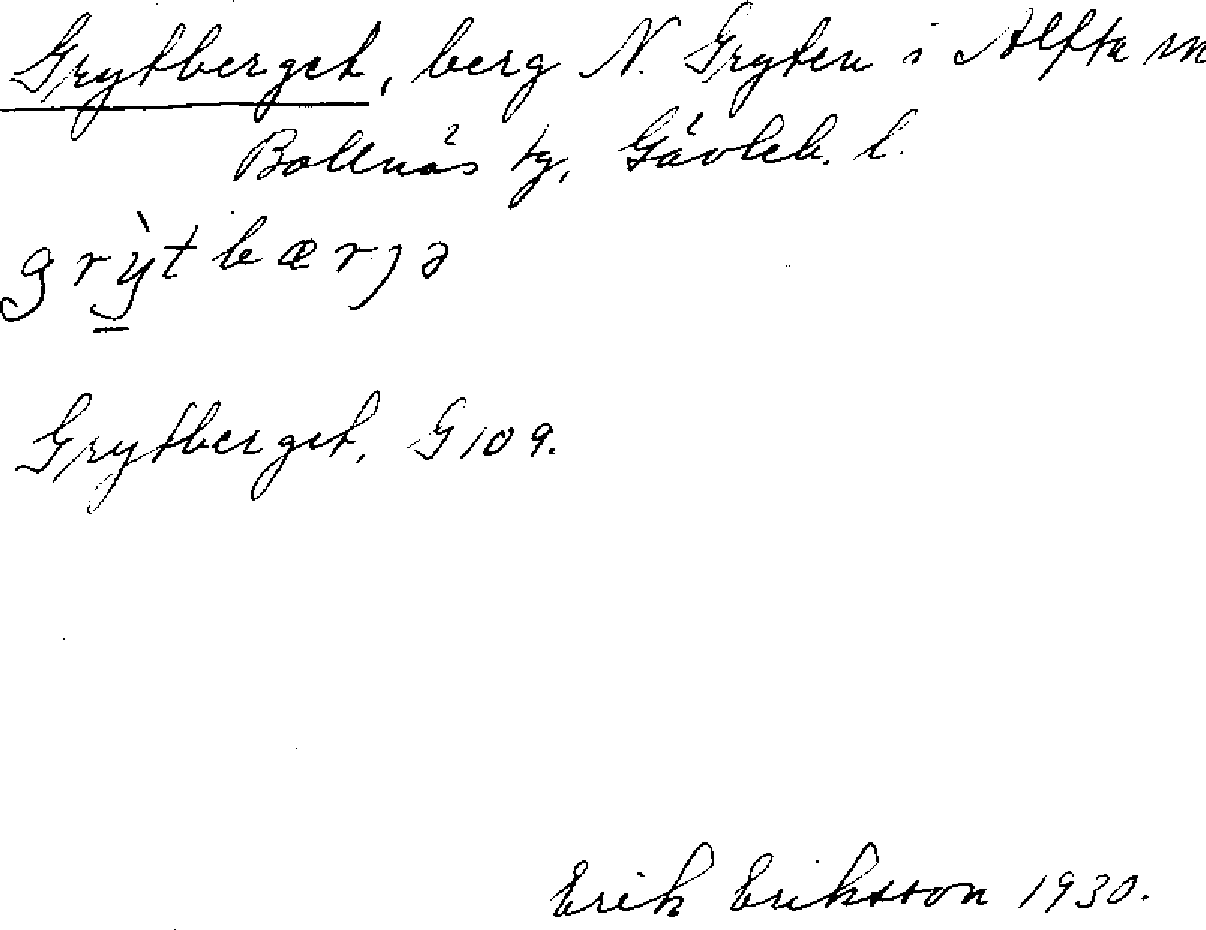 Grytberget, berg N. Gryten i Alfta sn
Bollnäs tg, Gävleb. l.
grỳtbærjə
Grytberget, G 109.
Erik Eriksson 1930.